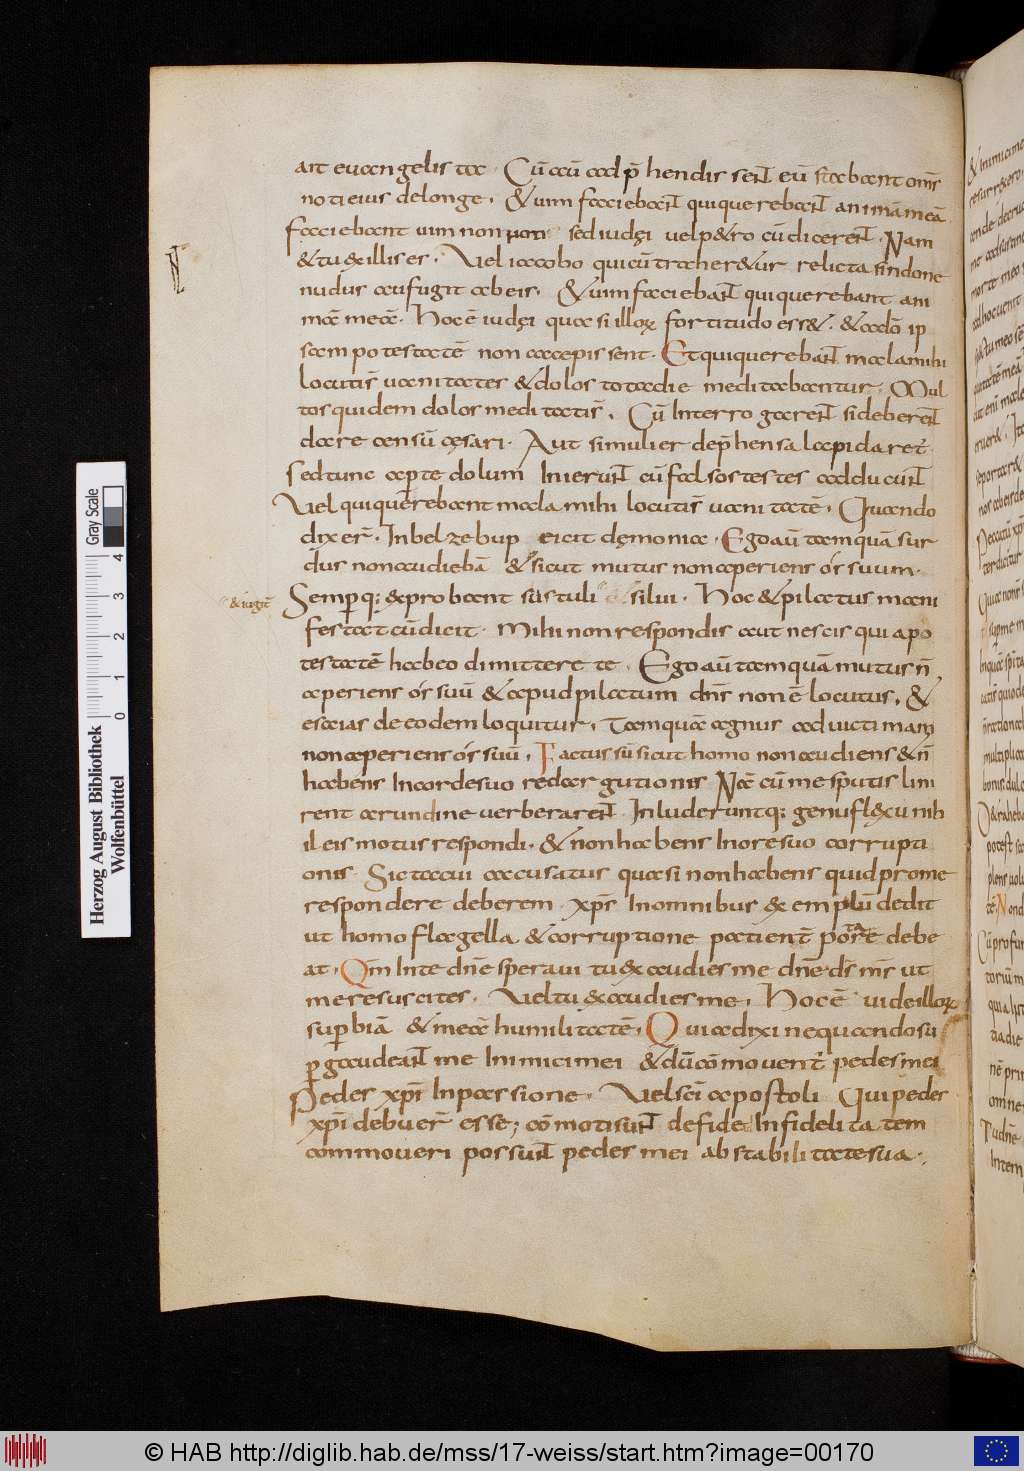 ait evangelista · Cū aū adp̄hendissen̄t eū stabant om̄s
noti eius delonge · & uim facieban̄t qui querebant animā meā
faciebant uim non sed iudęi uel p&ro cū dicerent · Nam
& tu ex illis es · Vel iacobo qui cū traher&ur relicta sindone
nudus aufugit ab eis · & uim faciebant qui querebant ani
mā meā · Hoc ē iudęi quasi illoꝝ fortitudo ess& · & adō ip
sam potestatē non accepissent · Et qui querebant mala mihi
locuti s̄ vanitates & dolos tota die meditabantur · Mul
tos quidem dolos meditati s̄ · Cū Interrogarent si deberent
dare censū cęsari · Aut si mulier dep̄hensa lapidaret̄
sed tunc apte dolum Inierunt cū falsos testes adducunt
Vel qui querebant mala mihi locuti s̄ vanitatē · Quando
dixer̄ · In belzebup eicit dęmonia · Ego aū tamquā sur
dus non audiebā & sicut mutus non aperiens os suum ·
& iugit̄
Semꝑq; exprobant sustuli silui · Hoc & pilatus mani
festat cū dicit · Mihi non respondis aut nescis quia po
testatē habeo dimittere te · Ego aū tamquā mutus n̄
aperiens os suū & apud pilatum dn̄s non ē locutus · &
esaias de eodem loquitur · Tamquā agnus ad victimam
non aperiens os suū · Factus sū sicut homo non audiens & n̄
habens In ore suo redargutionis Nā cū me sputis lini
rent arundine verberarent Inluderuntq; genu flexu nih
il eis motus respondi · & non habens In ore suo corrupti
onis Sic tacui accusatus quasi non habens quid pro me
respondere deberem · xp̄s In omnibus exemplū dedit
ut homo flagella & corruptione patient̄ portare debe
at · Qm̄ In te dn̄e speravi tu exaudies me dn̄e d̄s m̄s ut
me resuscites · Vel tu exaudies me · Hoc ē vide illoꝝ
suꝑbiā & meā humilitatē · Quia dixi nequando su
ꝑgaudeant me Inimici mei & dū cōmovent̄ pedes mei
Pedes xp̄i In passione · Vel sc̄i apostoli Qui pedes
xp̄i debuer̄ esse; cōmoti sunt de fide In fidelitatem
commoveri possunt pedes mei ab stabilitate sua ·
Herzog August Bibliothek
Wolfenbüttel
Gray Scale
0 1 2 3 4
© HAB http://diglib.hab.de/mss/17-weiss/start.htm?image=00170